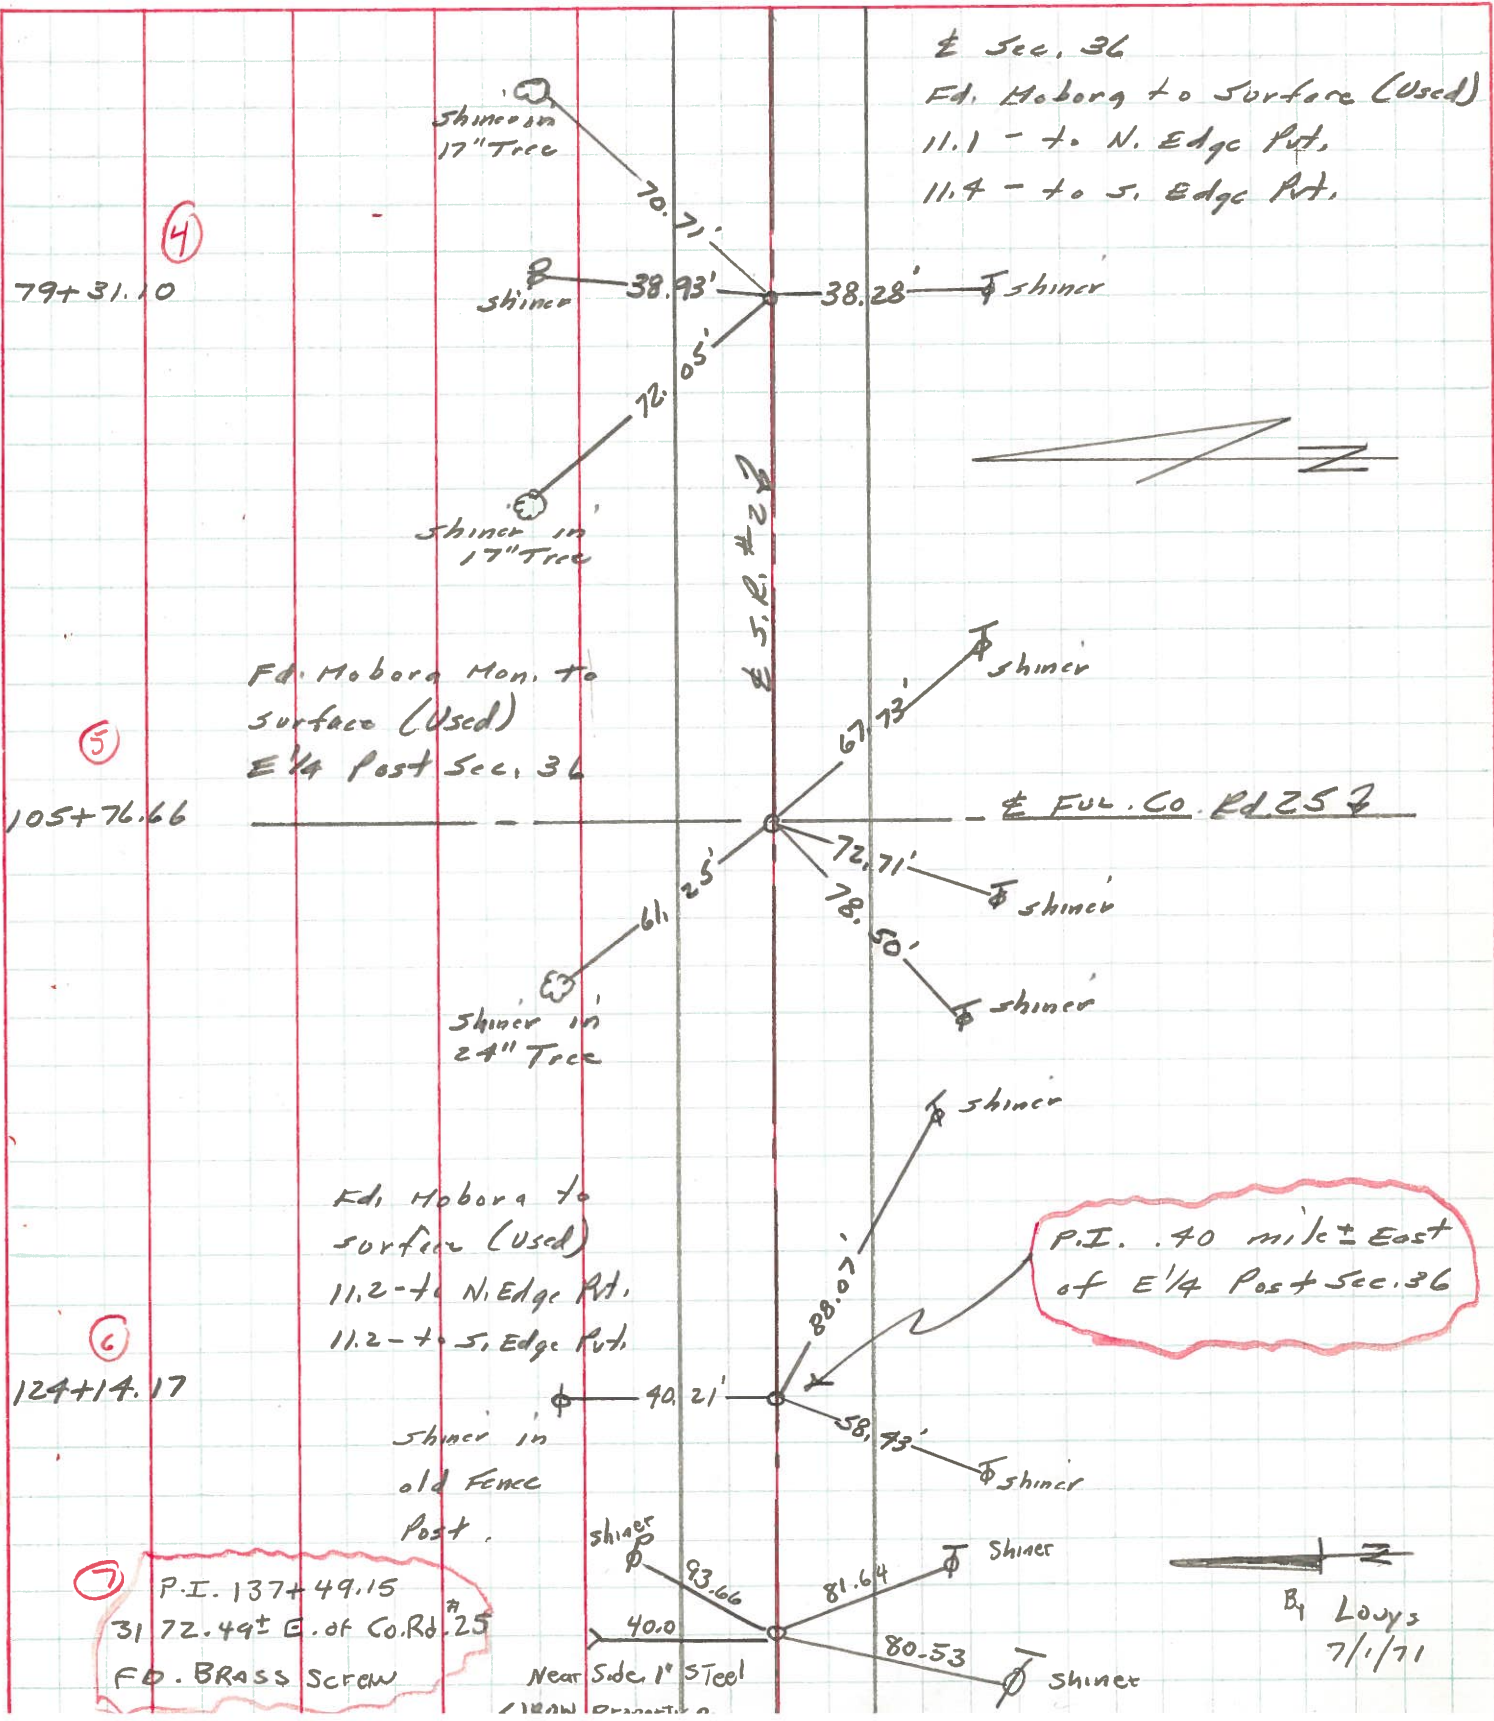 ℄ Sec. 36
Fd. Mobora to Surface (Used)
11.1 - to N. Edge Pvt.
11.4 - to S. Edge Pvt.
shiner in
17" Tree
70.71'
④
79+31.10
shiner
38.93'
38.28'
shiner
72.05'
shiner in
17" Tree
N
℄ S.R. #2
shiner
67.73'
Fd. Mobora Mon. to
surface (Used)
E 1/4 Post Sec. 36
⑤
105+76.66
℄ Ful. Co. Rd. 25
72.71'
shiner
78.50'
shiner
61.25'
shiner in
24" Tree
shiner
88.07'
Fd. Mobora to
surface (Used)
11.2 - to N. Edge Pvt.
11.2 - to S. Edge Pvt.
P.I. .40 mile ± East
of E 1/4 Post Sec. 36
⑥
124+14.17
40.21'
58.93'
shiner
shiner in
old Fence
Post.
shiner
93.66
81.64
Shiner
N
⑦
P.I. 137+49.15
3172.49± E. of Co.Rd.#25
FD. BRASS Screw
40.0
80.53
Shiner
Near Side 1" Steel
By Louys
7/1/71